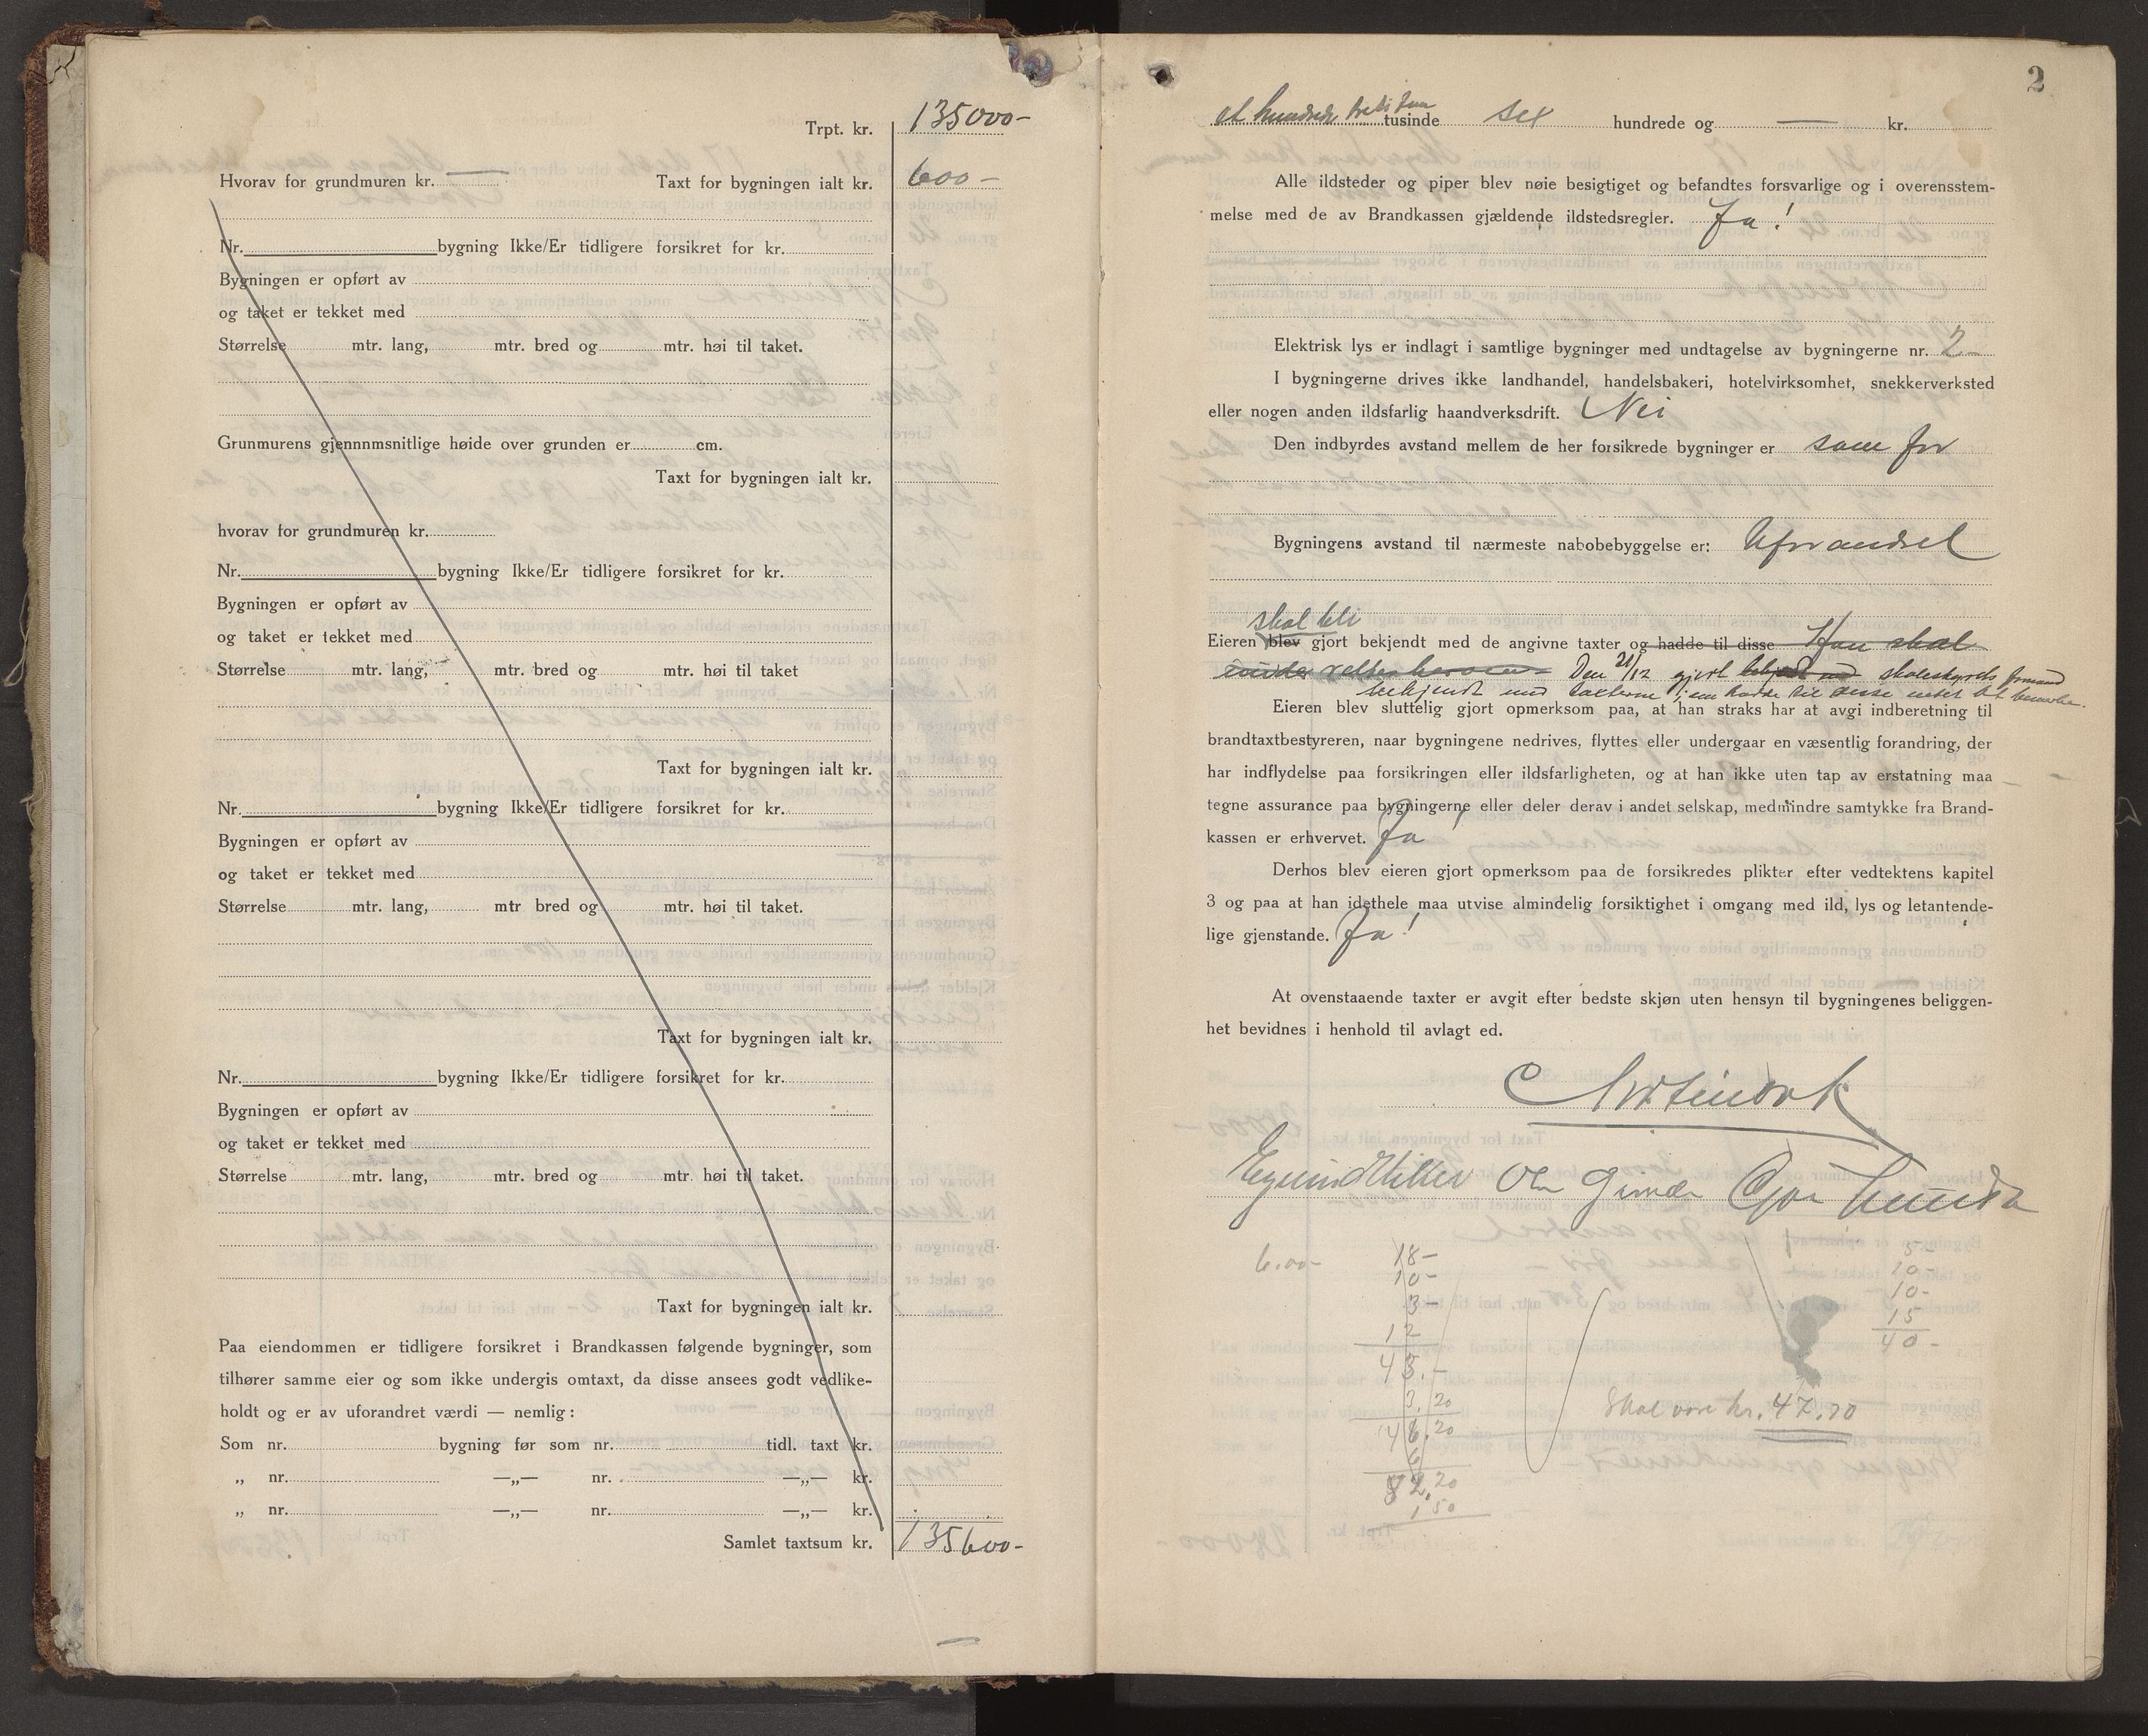 Trpt. kr. 135000-
Hvorav for grundmuren kr. — Taxt for bygningen ialt kr. 600-
Nr. bygning Ikke/Er tidligere forsikret for kr.
Bygningen er opført av
og taket er tekket med
Størrelse mtr. lang, mtr. bred og mtr. høi til taket.
Grunmurens gjennnmsnitlige høide over grunden er cm.
Taxt for bygningen ialt kr.
hvorav for grundmuren kr.
Nr. bygning Ikke/Er tidligere forsikret for kr.
Bygningen er opført av
og taket er tekket med
Størrelse mtr. lang, mtr. bred og mtr. høi til taket
Taxt for bygningen ialt kr.
Nr. bygning Ikke/Er tidligere forsikret for kr.
Bygningen er opført av
og taket er tekket med
Størrelse mtr. lang, mtr bred og mtr. høi til taket.
Taxt for bygningen ialt kr.
Nr. bygning Ikke/Er tidligere forsikret for kr.
Bygningen er opført av
og taket er tekket med
Størrelse mtr. lang, mtr. bred og mtr. høi til taket.
Taxt for bygningen ialt kr.
Paa eiendommen er tidligere forsikret i Brandkassen følgende bygninger, som
tilhører samme eier og som ikke undergis omtaxt, da disse ansees godt vedlike-
holdt og er av uforandret værdi — nemlig:
Som nr. bygning før som nr. tidl. taxt kr.
„ nr. —„— nr. —„— kr.
„ nr. —„— nr. —„— kr.
Samlet taxtsum kr. 135600-
2
et hundrede tretifem tusinde sex hundrede og — kr.
Alle ildsteder og piper blev nøie besigtiget og befandtes forsvarlige og i overensstem-
melse med de av Brandkassen gjældende ildstedsregler. Ja!
Elektrisk lys er indlagt i samtlige bygninger med undtagelse av bygningerne nr. 2-
I bygningerne drives ikke landhandel, handelsbakeri, hotelvirksomhet, snekkerverksted
eller nogen anden ildsfarlig haandverksdrift. Nei
Den indbyrdes avstand mellem de her forsikrede bygninger er som før
Bygningens avstand til nærmeste nabobebyggelse er: Uforandret
skal bli
Eieren blev gjort bekjendt med de angivne taxter og hadde til disse Han skal
Den 21/12 gjort skolestyrets formand
bekjendt med taxterne, som hadde til disse intet at bemerke.
Eieren blev sluttelig gjort opmerksom paa, at han straks har at avgi indberetning til
brandtaxtbestyreren, naar bygningene nedrives, flyttes eller undergaar en væsentlig forandring, der
har indflydelse paa forsikringen eller ildsfarligheten, og at han ikke uten tap av erstatning maa
tegne assurance paa bygningerne eller deler derav i andet selskap, medmindre samtykke fra Brand-
kassen er erhvervet. Ja!
Derhos blev eieren gjort opmerksom paa de forsikredes plikter efter vedtektens kapitel
3 og paa at han idethele maa utvise almindelig forsiktighet i omgang med ild, lys og letantende-
lige gjenstande. Ja!
At ovenstaaende taxter er avgit efter bedste skjøn uten hensyn til bygningenes beliggen-
het bevidnes i henhold til avlagt ed.
6.00-
18-
10-
3-
12
43.-
3.20
46.20
6
52.20
1.50
5-
10-
10-
15
40-
Skal være kr. 47.70